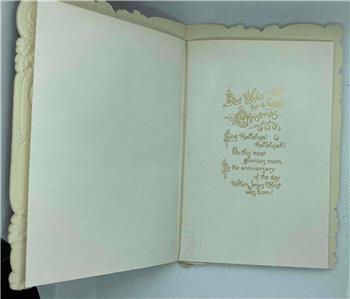 Best Wishes
for a happy
Christmas.
Sing Hallelujah!
Hallelujah!
On this most
glorious morn,
the anniversary
of the day
When Jesus Christ
was born!